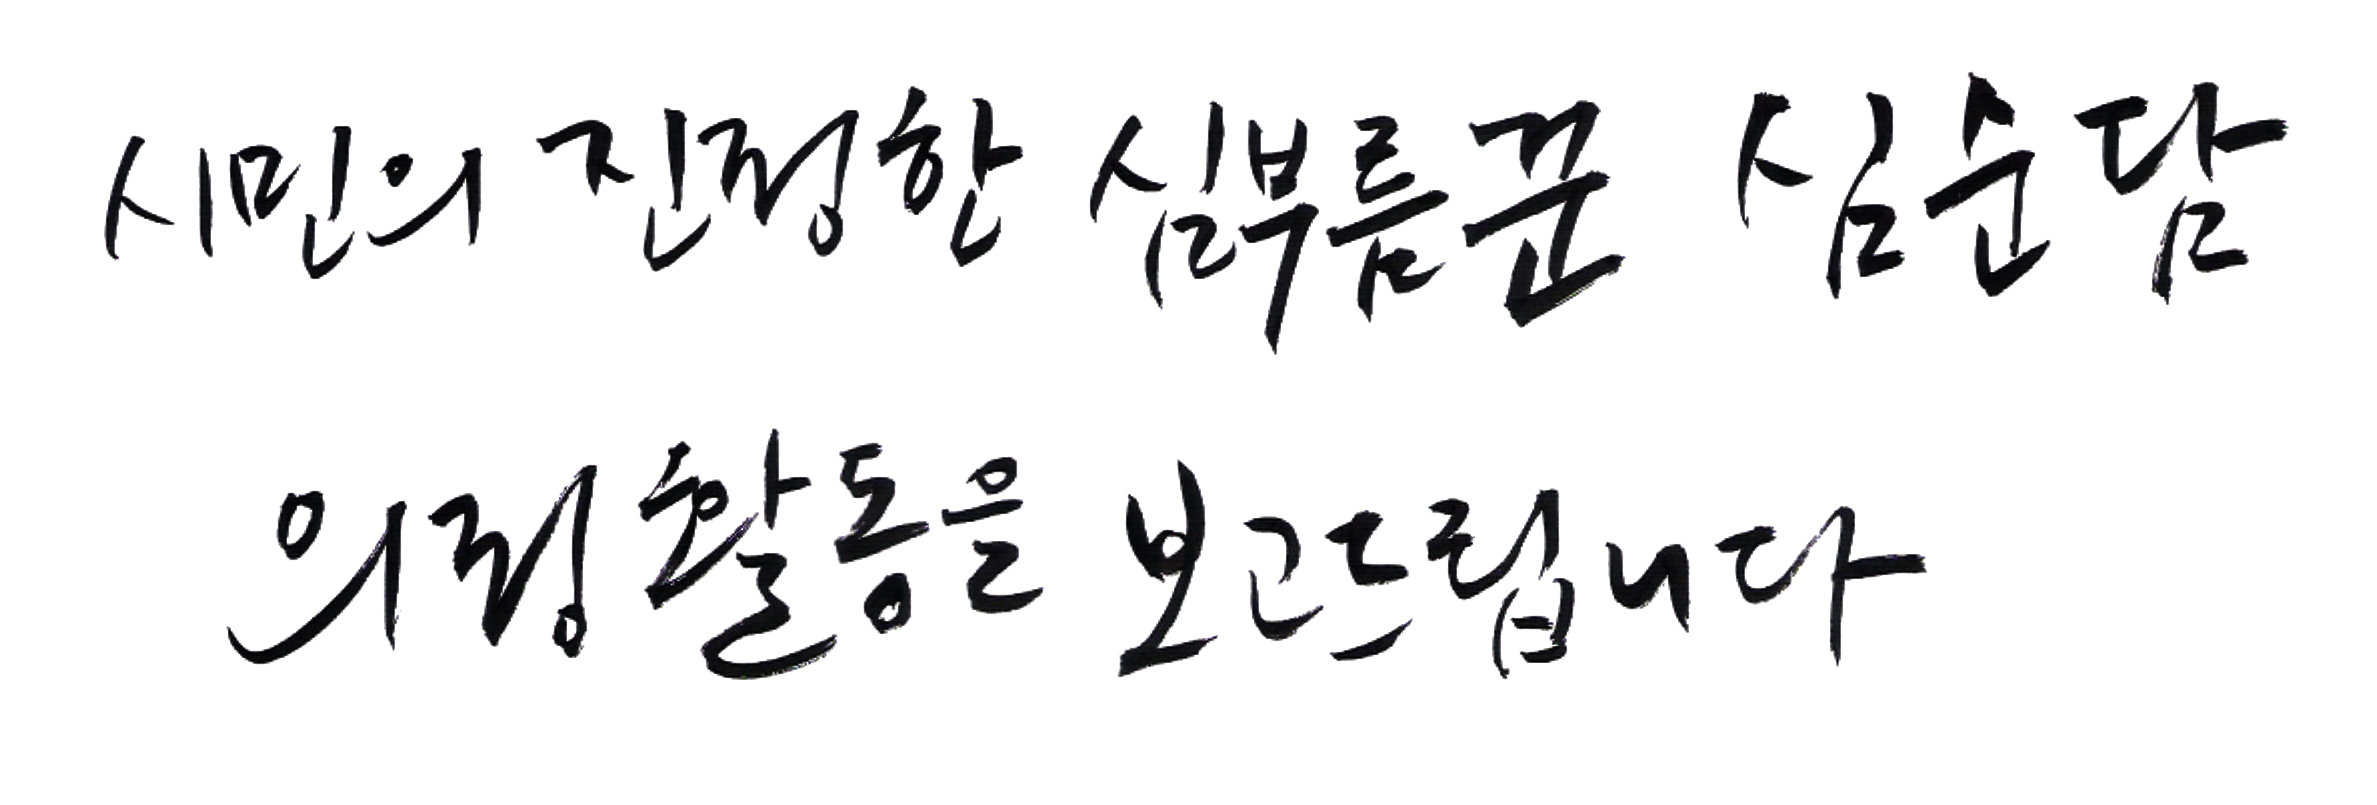 시민의 진정한 심부름꾼 심순담
의정활동을 보고드립니다